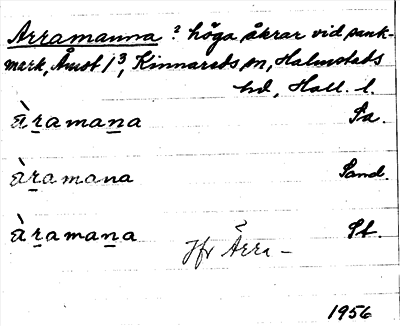 Arramanna ? höga åkrar vid sank-
mark, Åmot 1³, Kinnareds sn, Halmstads
hd, Hall. l.
àramana Pa.
àramana Sand.
àramana St.
Jfr Ärra –
1956